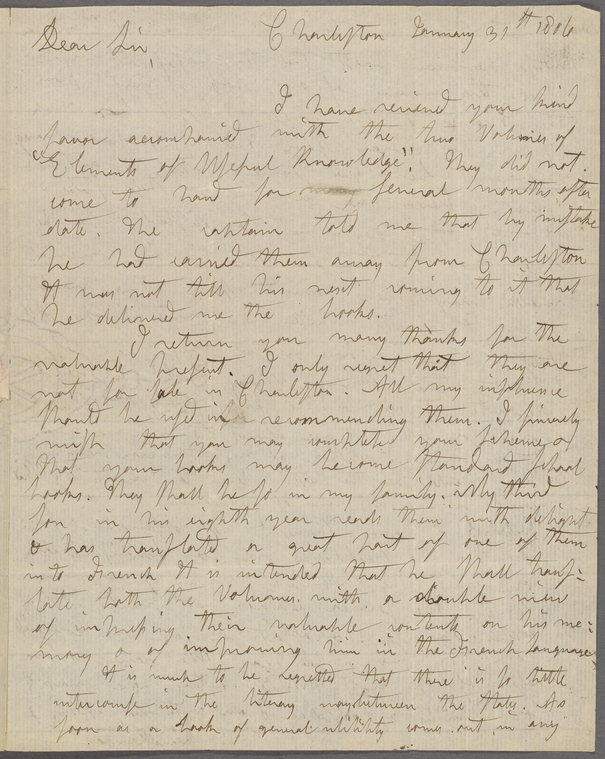 Charleſton January 31st 1806
Dear Sir,
I have recieved your kind
favor accompanied with the two Volumes of
"Elements of Uſeful Knowledge". They did not
come to hand for many ſeveral months after
date. The captain told me that by miſtake
he had carried them away from Charleſton
It was not till his next coming to it that
he delivered me the books.
I return you many thanks for the
valuable preſent. I only regret that they are
not for ſale in Charleſton. All my influence
ſhould be uſed in recommending them. I ſincerely
wiſh that you may complete your ſcheme &
that your books may become ſtandard ſchool
books. They ſhall be ſo in my family. My third
ſon in his eighth year reads them with delight
& has tranſlated a great part of one of them
into French It is intended that he ſhall tranſ=
late both the Volumes with a double view
of impreſſing their valuable contents on his me=
mory & of improving him in the French Language.
It is much to be regretted that there is ſo little
intercourſe in the literary way between the ſtates. As
ſoon as a book of general utility comes out in any